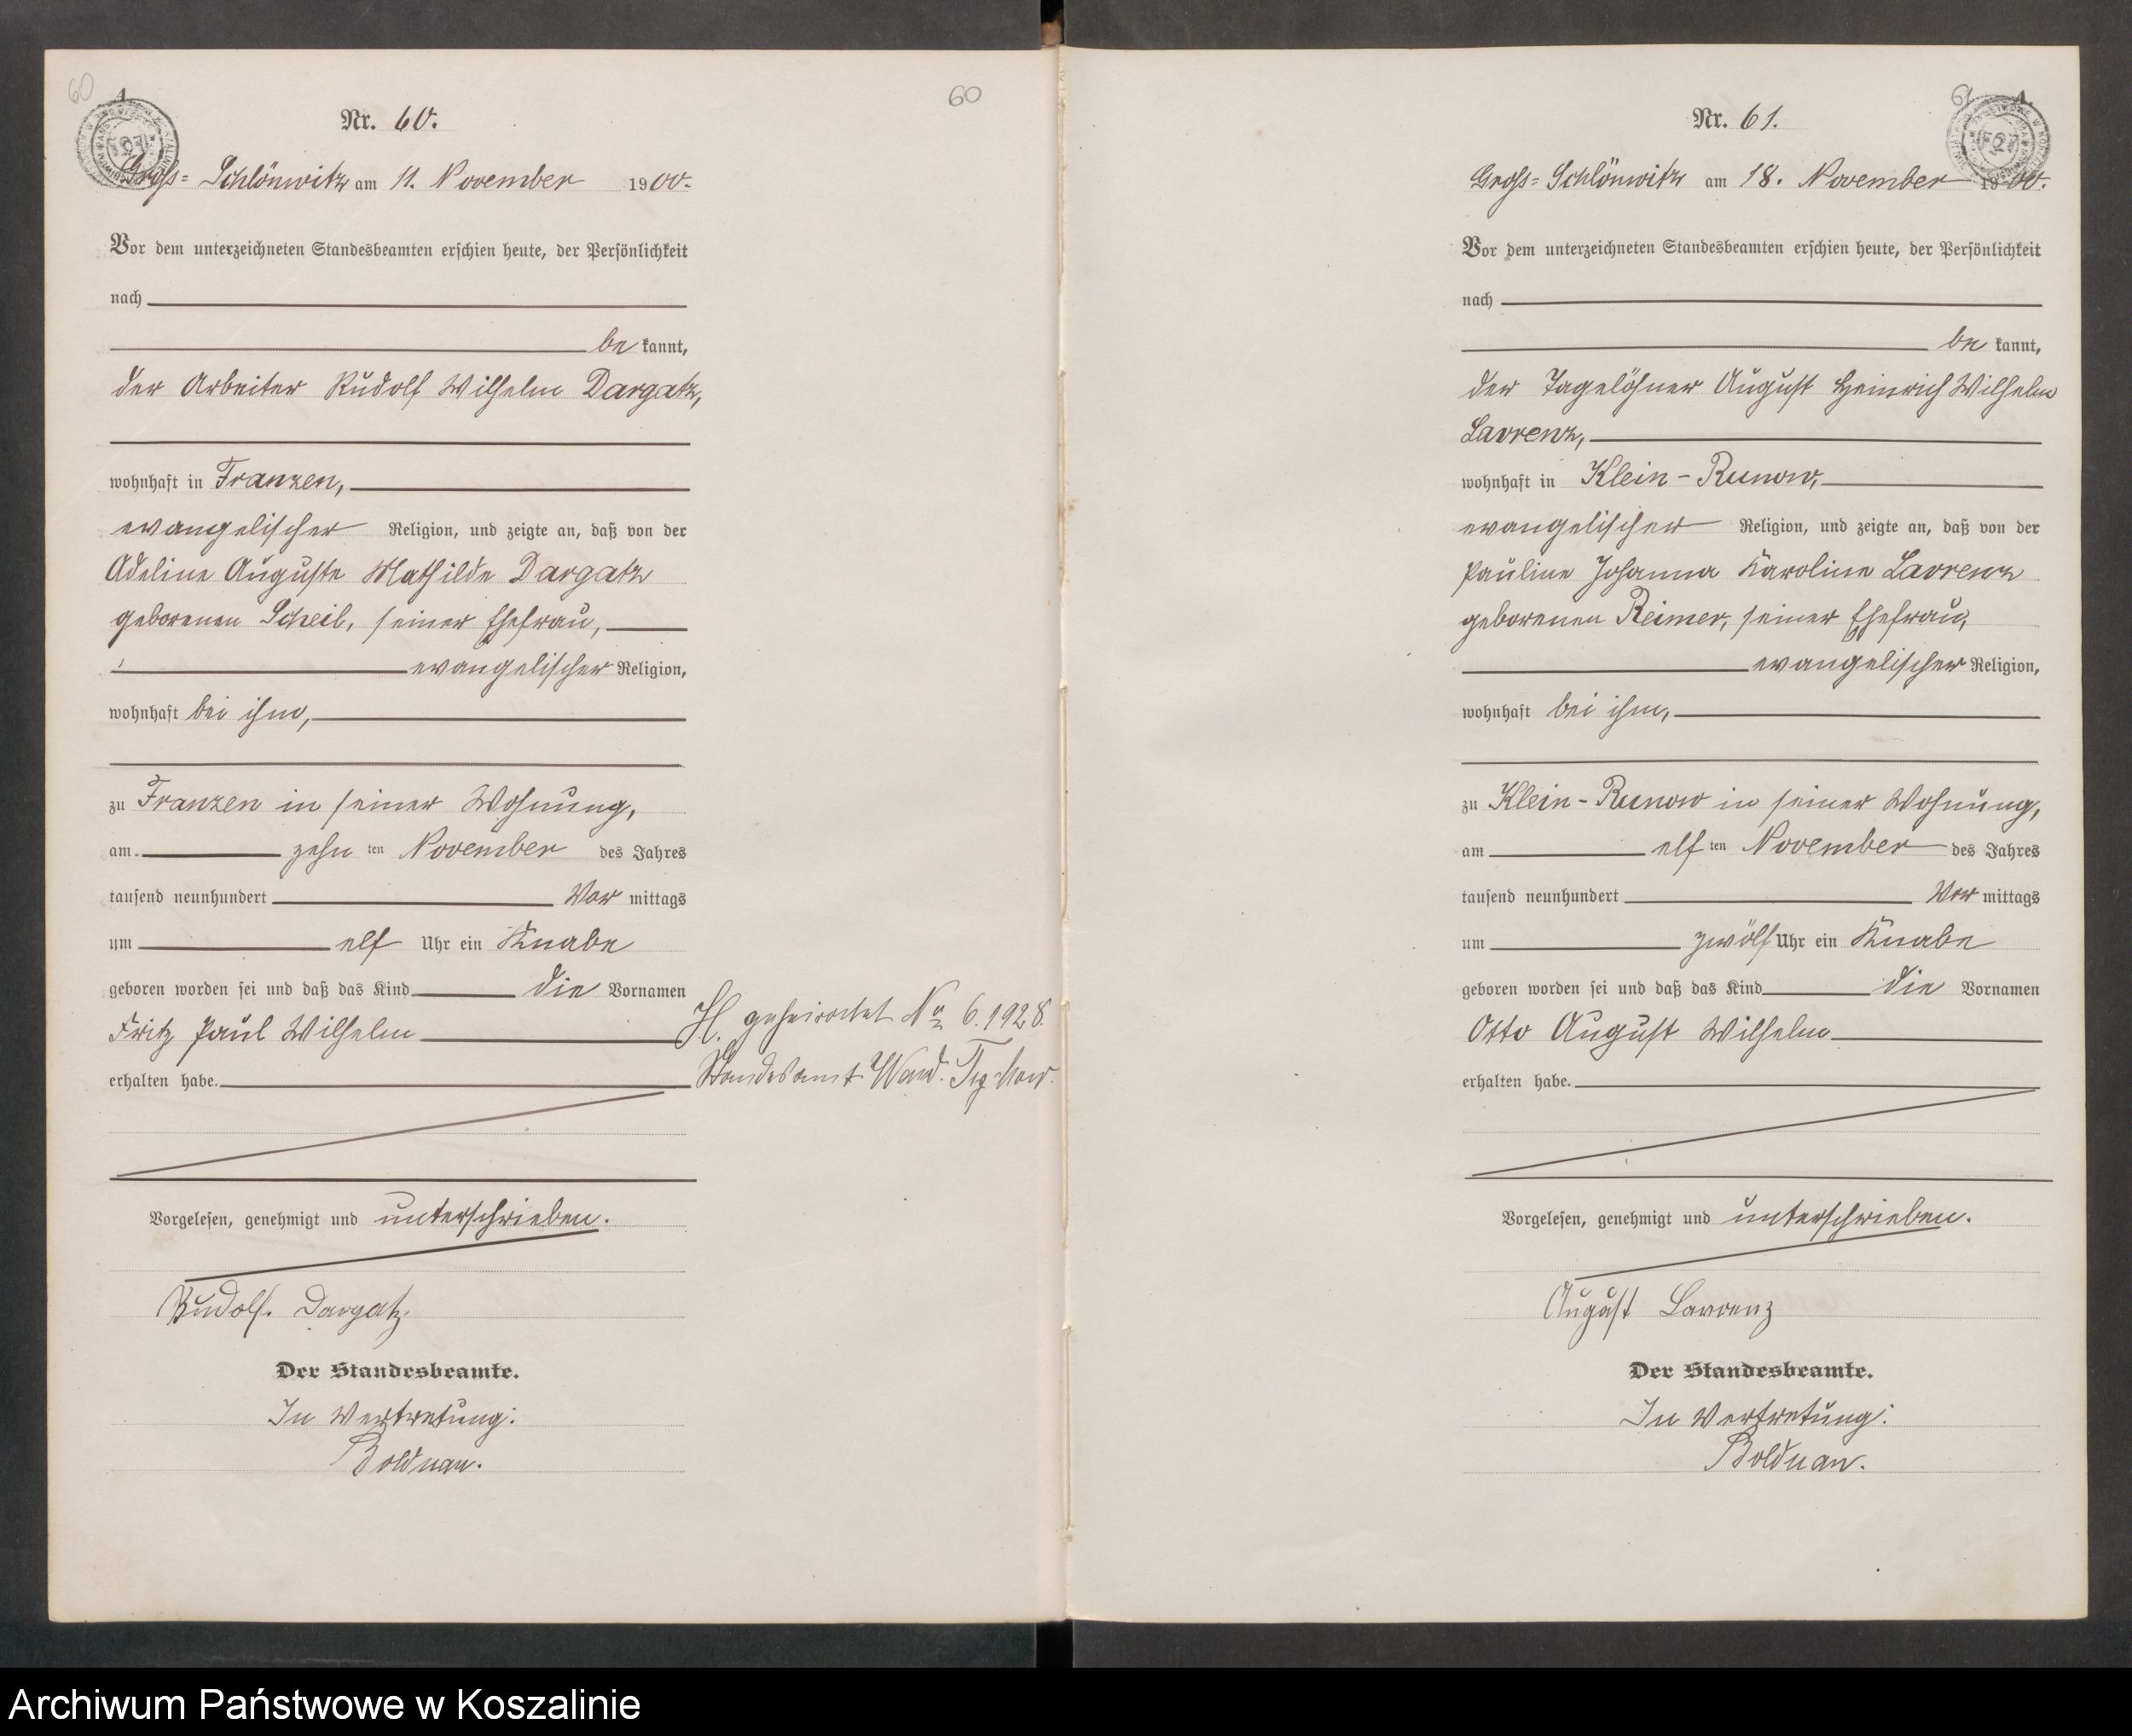 60
A.
Nr. 60.
Gross= Schlönwitz am 11. November 1900.
Vor dem unterzeichneten Standesbeamten erschien heute, der Persönlichkeit
nach
be kannt,
der Arbeiter Rudolf Wilhelm Dargatz,
wohnhaft in Franzen,
evangelischer Religion, und zeigte an, daß von der
Adeline Auguste Mathilde Dargatz
geborenen Scheil, seiner Ehefrau,
evangelischer Religion,
wohnhaft bei ihm,
zu Franzen in seiner Wohnung,
am zehn ten November des Jahres
tausend neunhundert Vor mittags
um elf Uhr ein Knabe
geboren worden sei und daß das Kind die Vornamen
Fritz Paul Wilhelm
erhalten habe.
Vorgelesen, genehmigt und unterschrieben.
Rudolf. Dargatz.
Der Standesbeamte.
In Vertretung:
Bolduan.
60
H. geheiratet No 6. 1928.
Standesamt
61
A.
Nr. 61.
Gross= Schlönwitz am 18. November 1900.
Vor dem unterzeichneten Standesbeamten erschien heute, der Persönlichkeit
nach
be kannt,
der Tagelöhner August Heinrich Wilhelm
Lavrenz,
wohnhaft in Klein-Runow,
evangelischer Religion, und zeigte an, daß von der
Pauline Johanna Karoline Lavrenz
geborenen Reimer, seiner Ehefrau,
evangelischer Religion,
wohnhaft bei ihm,
zu Klein-Runow in seiner Wohnung,
am elf ten November des Jahres
tausend neunhundert Vor mittags
um zwölf Uhr ein Knabe
geboren worden sei und daß das Kind die Vornamen
Otto August Wilhelm
erhalten habe.
Vorgelesen, genehmigt und unterschrieben.
August Lavrenz
Der Standesbeamte.
In Vertretung:
Bolduan.
Archiwum Państwowe w Koszalinie